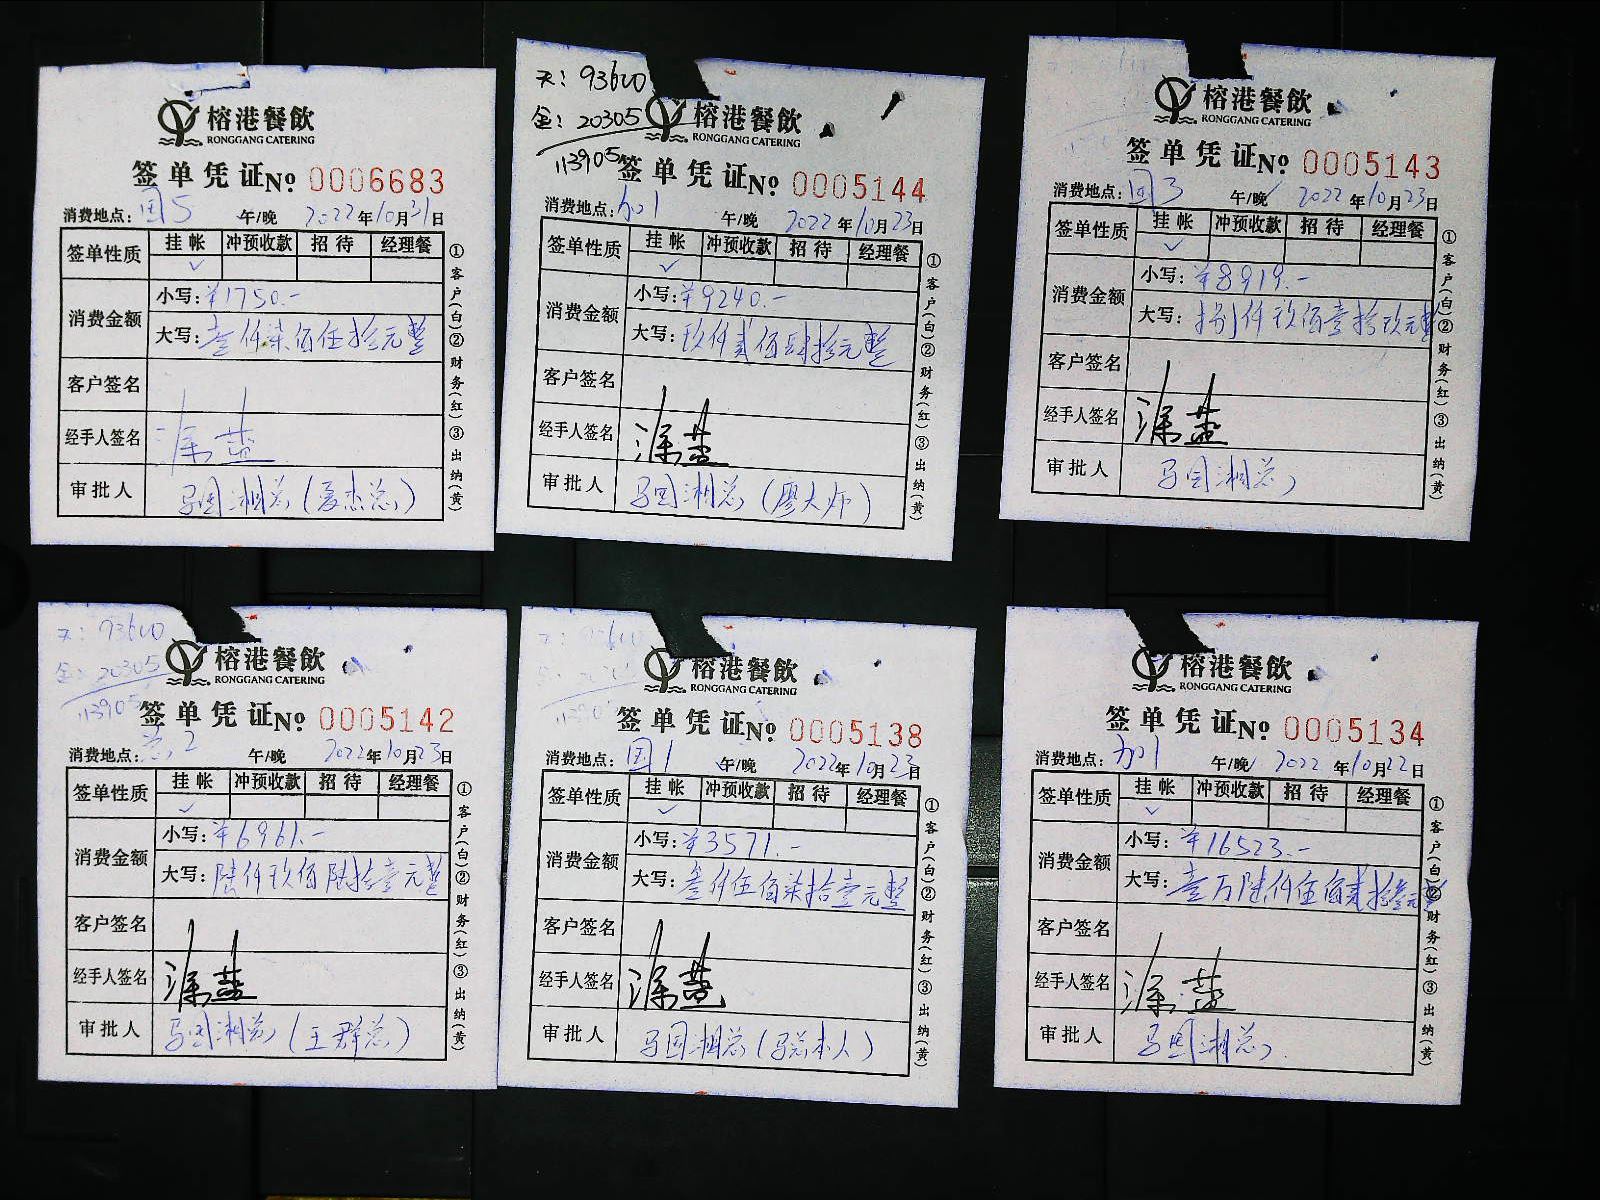 榕港餐飲
RONGGANG CATERING
签单凭证 No 0006683
消费地点：国5 午/晚 2022年10月31日
签单性质 挂帐 冲预收款 招待 经理餐
✓
消费金额 小写：¥1750.-
大写：壹仟柒佰伍拾元整
客户签名
经手人签名 涂蓝
审批人 马国湘总（夏杰总）
①客户（白）②财务（红）③出纳（黄）
天：93600
金：20305
113905
榕港餐飲
RONGGANG CATERING
签单凭证 No 0005144
消费地点：加1 午/晚 2022年10月23日
签单性质 挂帐 冲预收款 招待 经理餐
✓
消费金额 小写：¥9240.-
大写：玖仟贰佰肆拾元整
客户签名
经手人签名 涂蓝
审批人 马国湘总（廖大师）
①客户（白）②财务（红）③出纳（黄）
榕港餐飲
RONGGANG CATERING
签单凭证 No 0005143
消费地点：国3 午/晚 2022年10月23日
签单性质 挂帐 冲预收款 招待 经理餐
✓
消费金额 小写：¥8919.-
大写：捌仟玖佰壹拾玖元整
客户签名
经手人签名 涂蓝
审批人 马国湘总
①客户（白）②财务（红）③出纳（黄）
天：93600
金：20305
113905
榕港餐飲
RONGGANG CATERING
签单凭证 No 0005142
消费地点：2 午/晚 2022年10月23日
签单性质 挂帐 冲预收款 招待 经理餐
✓
消费金额 小写：¥6961.-
大写：陆仟玖佰陆拾壹元整
客户签名
经手人签名 涂蓝
审批人 马国湘总（王群总）
①客户（白）②财务（红）③出纳（黄）
榕港餐飲
RONGGANG CATERING
签单凭证 No 0005138
消费地点：国1 午/晚 2022年10月23日
签单性质 挂帐 冲预收款 招待 经理餐
✓
消费金额 小写：¥3571.-
大写：叁仟伍佰柒拾壹元整
客户签名
经手人签名 涂蓝
审批人 马国湘总（马总本人）
①客户（白）②财务（红）③出纳（黄）
榕港餐飲
RONGGANG CATERING
签单凭证 No 0005134
消费地点：加1 午/晚 2022年10月22日
签单性质 挂帐 冲预收款 招待 经理餐
✓
消费金额 小写：¥16523.-
大写：壹万陆仟伍佰贰拾叁元整
客户签名
经手人签名 涂蓝
审批人 马国湘总
①客户（白）②财务（红）③出纳（黄）